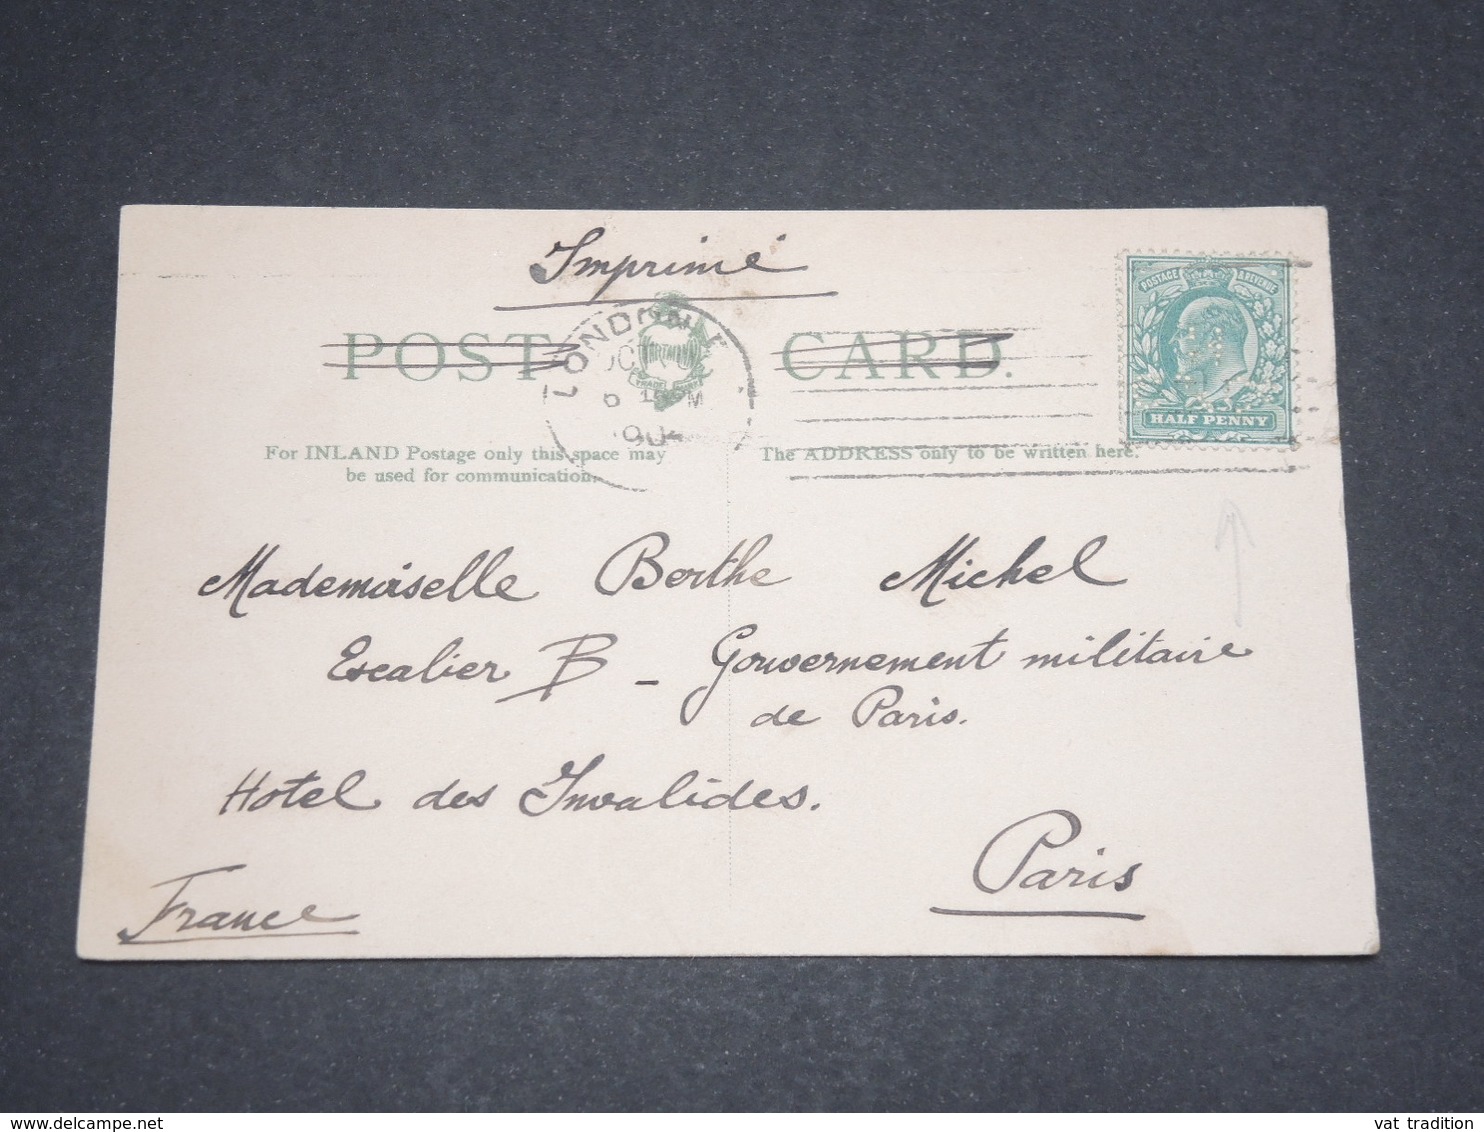 Imprimé
POST CARD.
LONDON
POSTAGE & REVENUE
HALF PENNY
For INLAND Postage only this space may
be used for communication.
The ADDRESS only to be written here.
Mademoiselle Berthe Michel
Escalier B - Gouvernement militaire
de Paris.
Hotel des Invalides.
Paris
France
delcampe.net
vat tradition